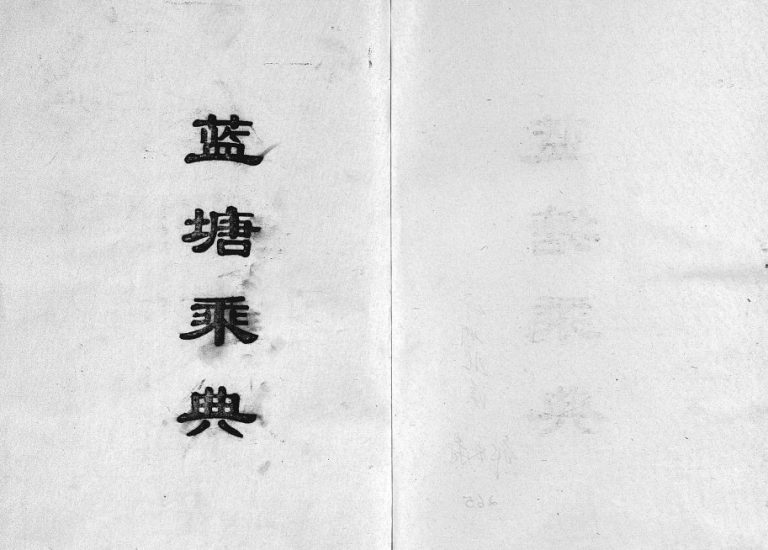 蓝塘乘典
265